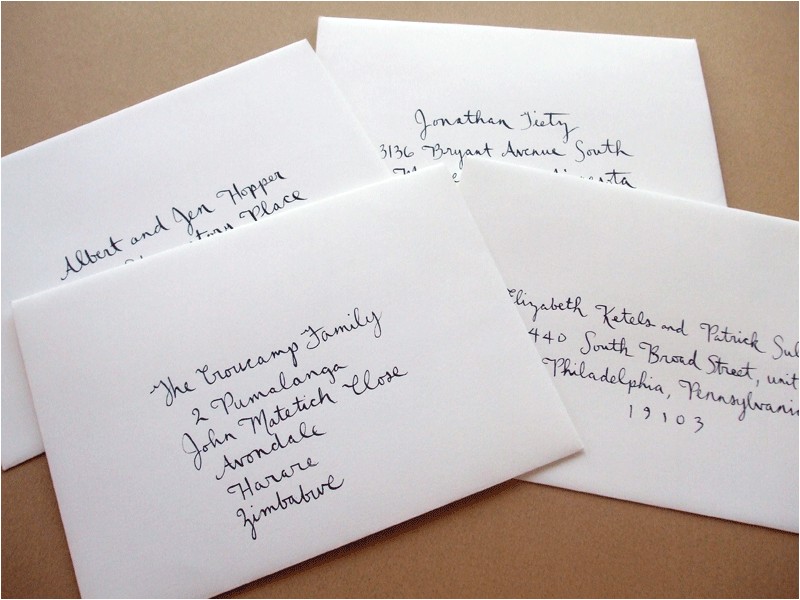 Jonathan Tiety
3136 Bryant Avenue South
Albert and Jen Hopper
Place
The Groucamp Family
2 Pumalanga
John Matetich Close
Avondale
Harare
Zimbabwe
Elizabeth Ketels and Patrick Sul
440 South Broad Street, unit
Philadelphia, Pennsylvani
19103